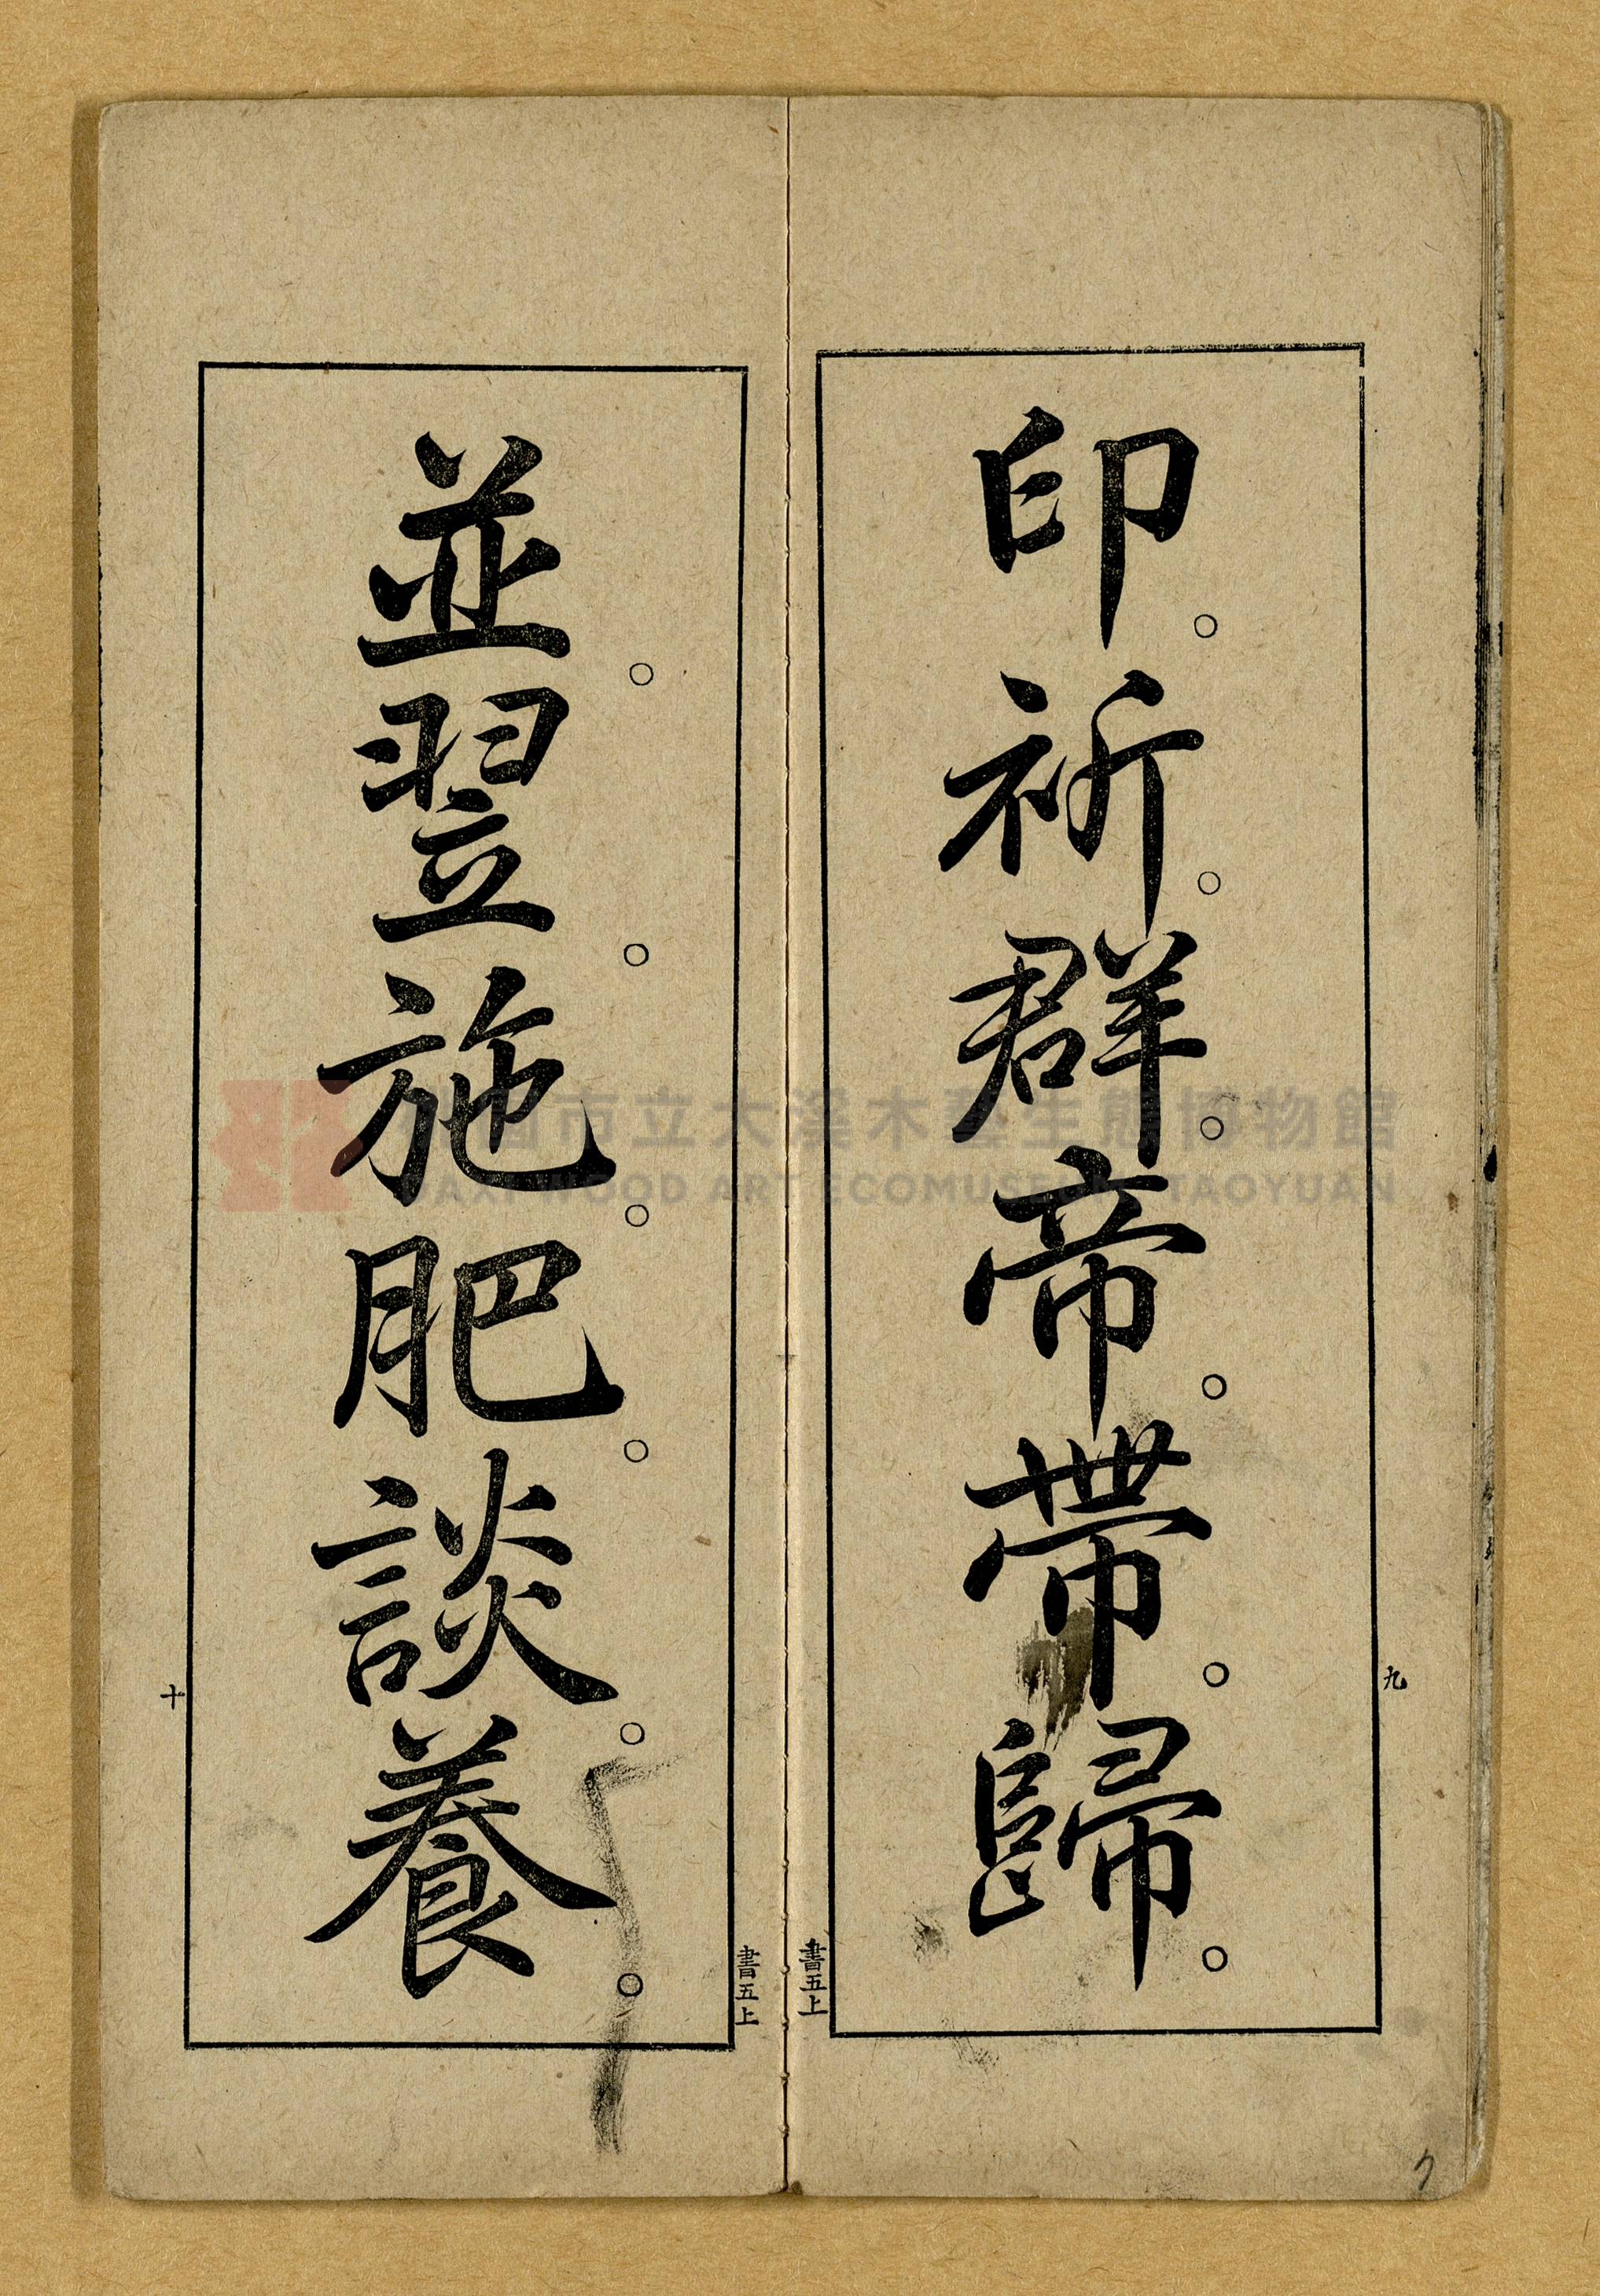 印。祈。群。帝。帶。歸。
九
書五上
並。翌。施。肥。談。養。
十
書五上
桃園市立大溪木藝生態博物館
DAXI WOOD ART ECOMUSEUM, TAOYUAN